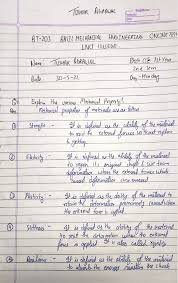 TUSHAR AGRAWAL
BT-203 BASIC MECHANICAL ENGINEERING ONLINE TEST
LNCT COLLEGE
Name :- TUSHAR AGRAWAL
Batch CSE 1st Year
2nd Sem
Date 30-5-21
Day - Monday
Explain the various Mechanical Property?
Mechanical properties of materials are as below
① Strength :- It is defined as the ability of the material
to resist the external forces without
② Elasticity :- It is defined as the ability of the material
to regain its original shape & size
deformation when the external forces which
caused deformation are removed
③ Plasticity :- It is defined as the ability of the material to
retain the deformation permanently
the external force is
④ Stiffness :- It is defined as the ability of the material
to resist the deformation when the external
force is applied. It is also called rigidity.
⑤ Resilience :- It is defined as the ability of the material
to absorb the energy